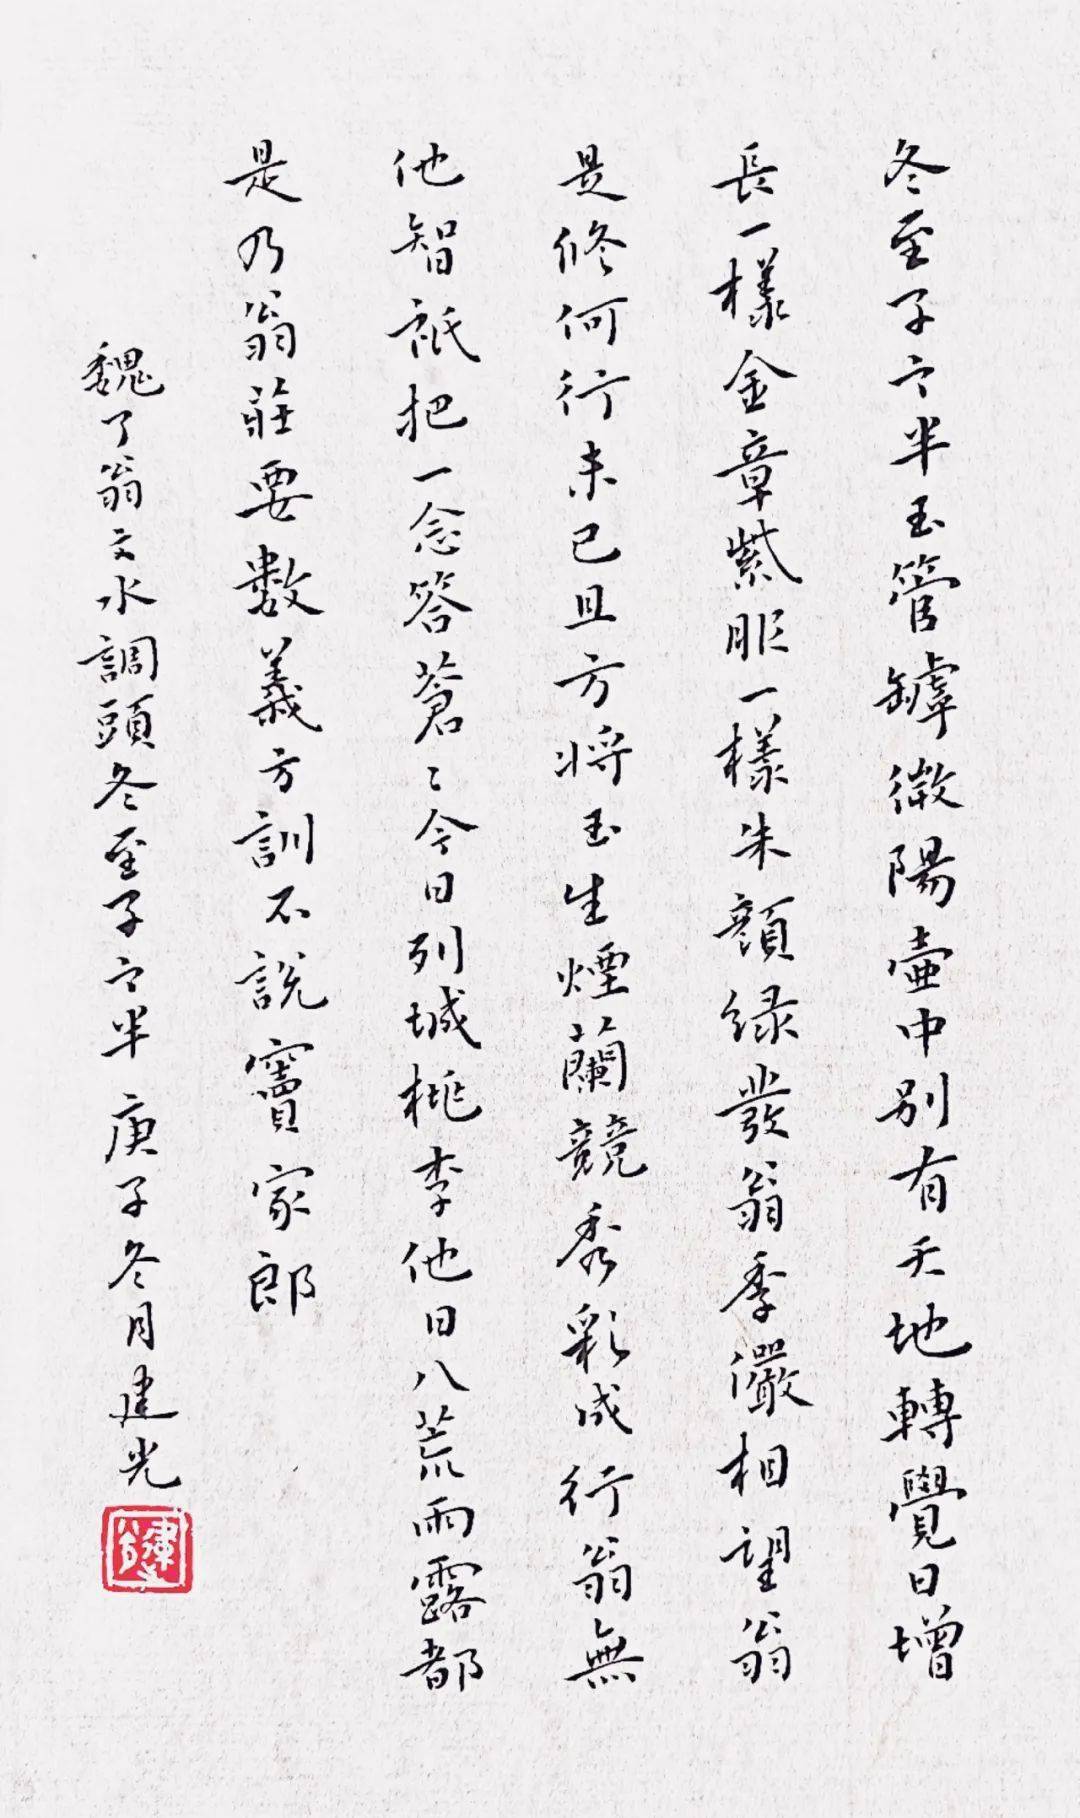 冬至子之半玉管罅微陽壺中別有天地轉覺日增
長一樣金章紫服一樣朱顏綠發翁季儼相望翁
是修何行未已且方將玉生煙蘭競秀彩成行翁無
他智祇把一念答蒼〻今日列城桃李他日八荒雨露都
是乃翁莊要數義方訓不說竇家郎
魏了翁之水調頭冬至子之半 庚子冬月建光